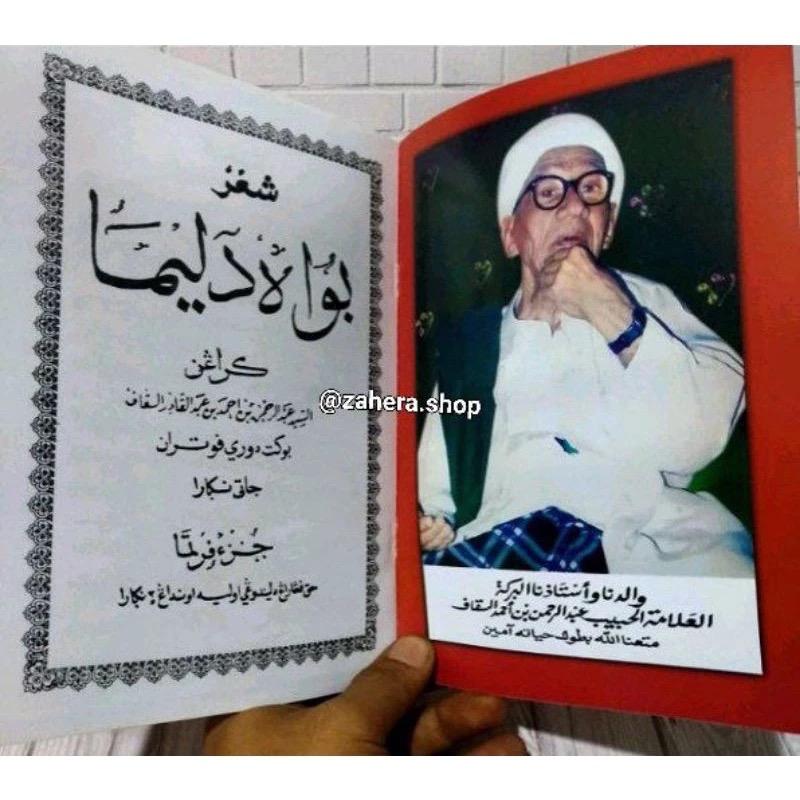 شعر
بواه دليما
كراڠن
السيد عبد الرحمن بن احمد بن عبد القادر السقاف
بوكت دوري فوتران
جاتي نكارا
جزء فرتما
حق فڠارڠ دليندوڠي اوليه اوندڠ٢ نكارا
@zahera.shop
والدنا وأستاذنا البركة
العلامة الحبيب عبد الرحمن بن أحمد السقاف
متعنا الله بطول حياته آمين